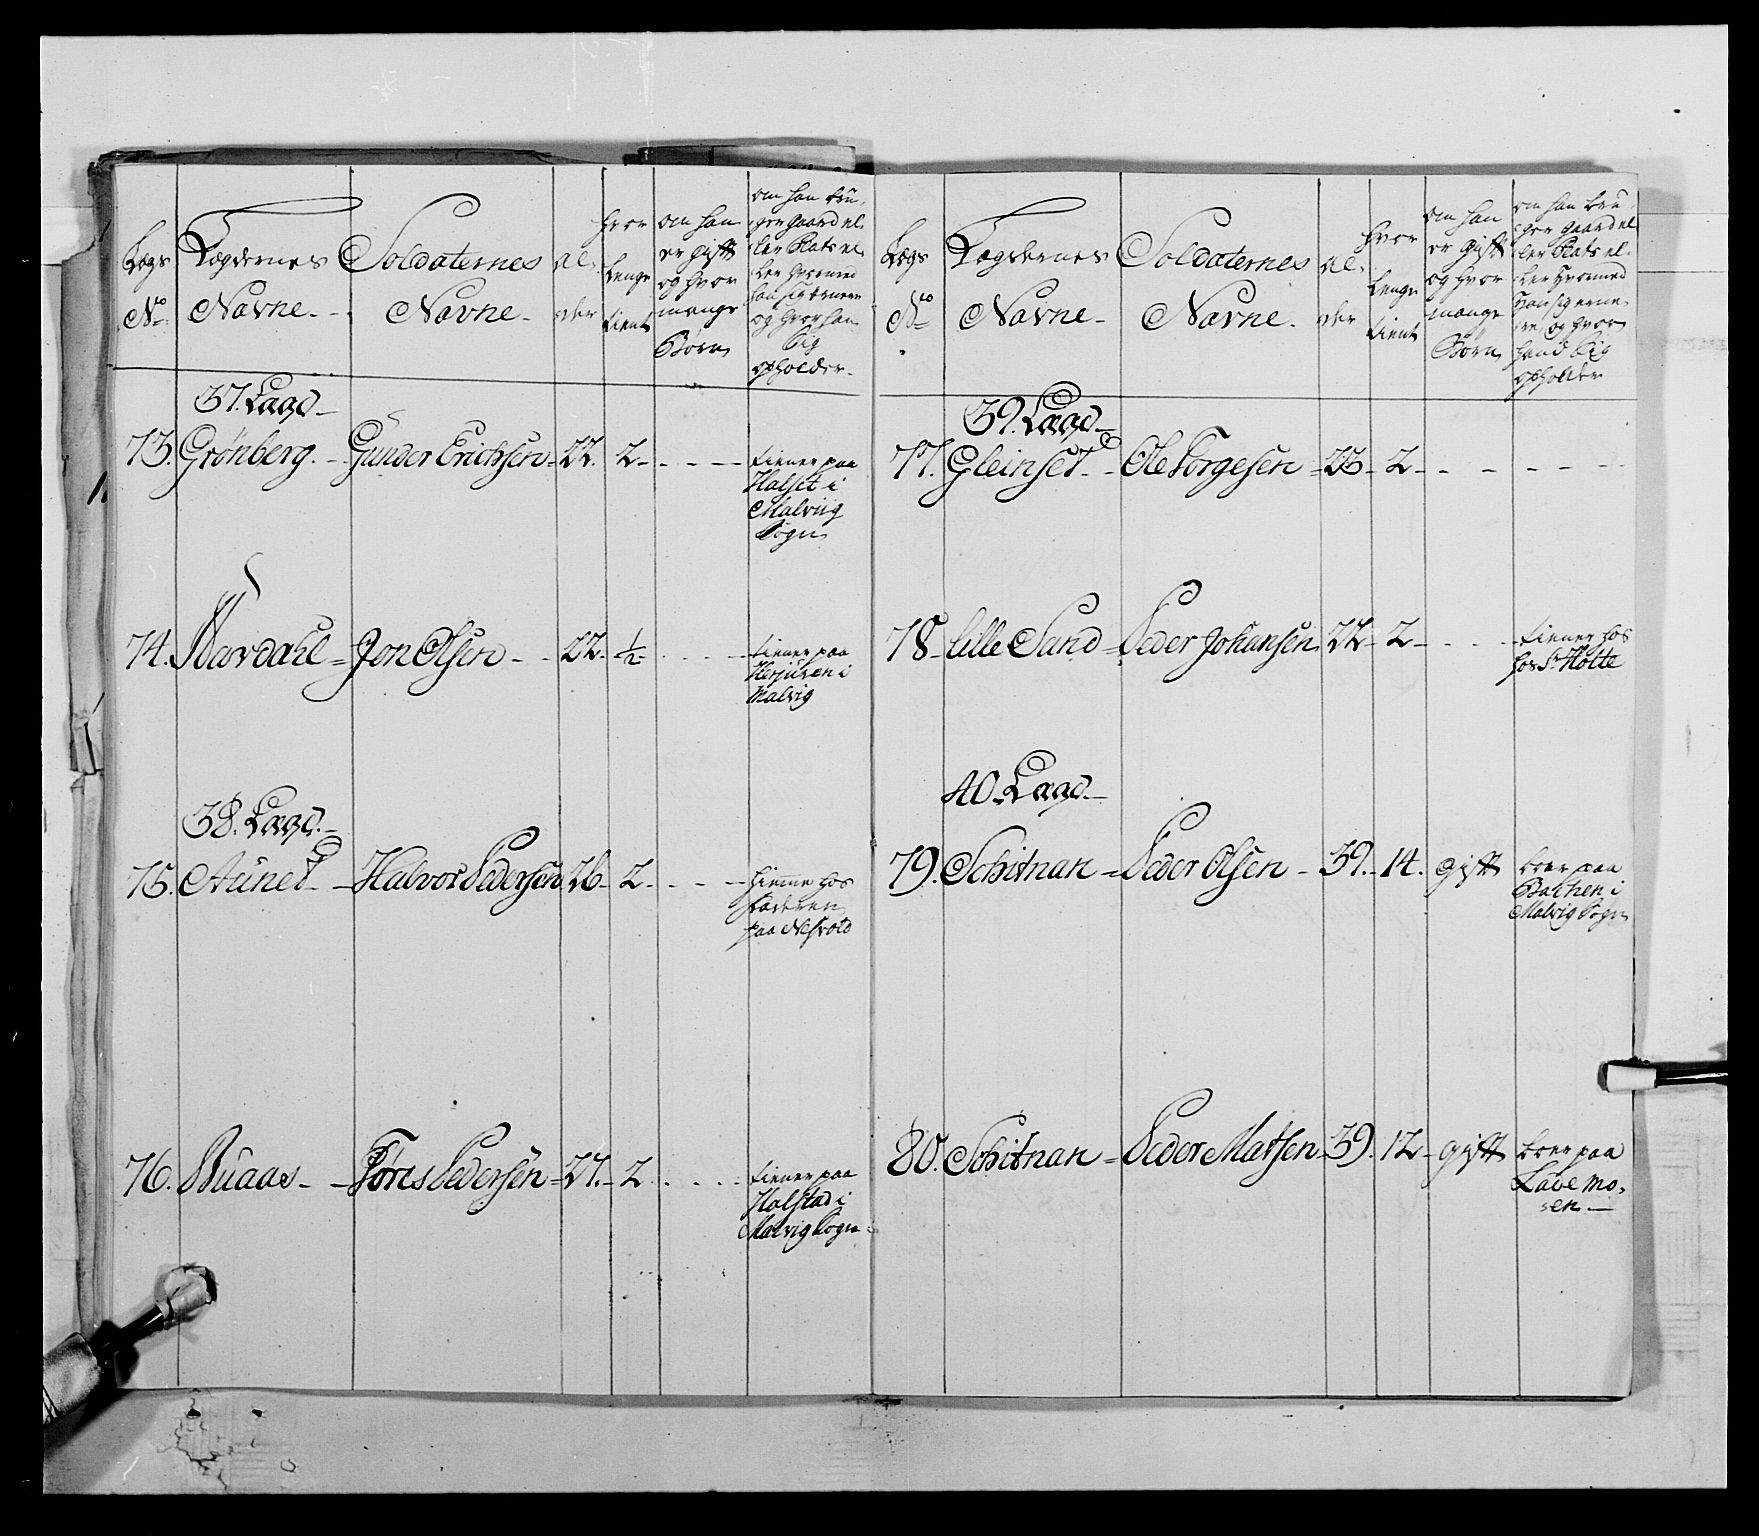 Lægs No
Lægdernes Navne
Soldaternes Navne
al- der
hvor lenge tient
om han er gift og hvor mange Børn
om han bru- ger Gaard el- ler Plats el- ler hvormed han sig ernerer og hvor han sig opholder
37. Lægd
73. Grönberg Gunder Erichsen 22. 2 tiener paa
Halset i
Malviig
Sogn
74. Jon Olsen 22. ½ tiener paa
i
Malvig
38. Lægd
75. Aunet Halvor Pedersen 26 2 hieme hos
Faderen
paa
76. Buaas Pedersen 27. 2 tiener paa
Halstad i
Malvig Sogn
Lægs No
Lægdernes Navne
Soldaternes Navne
al- der
hvor lenge tient
om han er gift og hvor mange Børn
om han bru- ger Gaard el- ler Plats el- ler hvormed han sig erne- rer og hvor hand sig opholder
39. Lægd
77. Gleinset Ole Torgesen 23 2
78 lille Sand Peder Johansen 22 2 tiener hos
hos Sr Holte
40. Lægd
79. Schitnan Peder Olsen 39. 14. gift boer paa
Bachen i
Malvig Sogn
80. Schitnan Peder Matsen 39. 12 gift boer paa
Lave mo-
sen